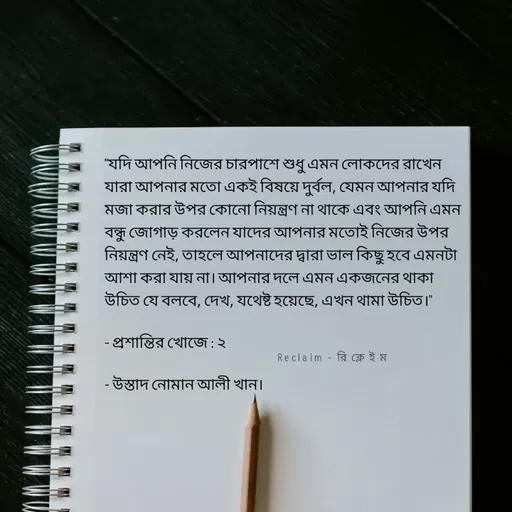 "যদি আপনি নিজের চারপাশে শুধু এমন লোকদের রাখেন
যারা আপনার মতো একই বিষয়ে দুর্বল, যেমন আপনার যদি
মজা করার উপর কোনো নিয়ন্ত্রণ না থাকে এবং আপনি এমন
বন্ধু জোগাড় করলেন যাদের আপনার মতোই নিজের উপর
নিয়ন্ত্রণ নেই, তাহলে আপনাদের দ্বারা ভাল কিছু হবে এমনটা
আশা করা যায় না। আপনার দলে এমন একজনের থাকা
উচিত যে বলবে, দেখ, যথেষ্ট হয়েছে, এখন থামা উচিত।"
- প্রশান্তির খোজে : ২
Reclaim - রি ক্লে ই ম
- উস্তাদ নোমান আলী খান।